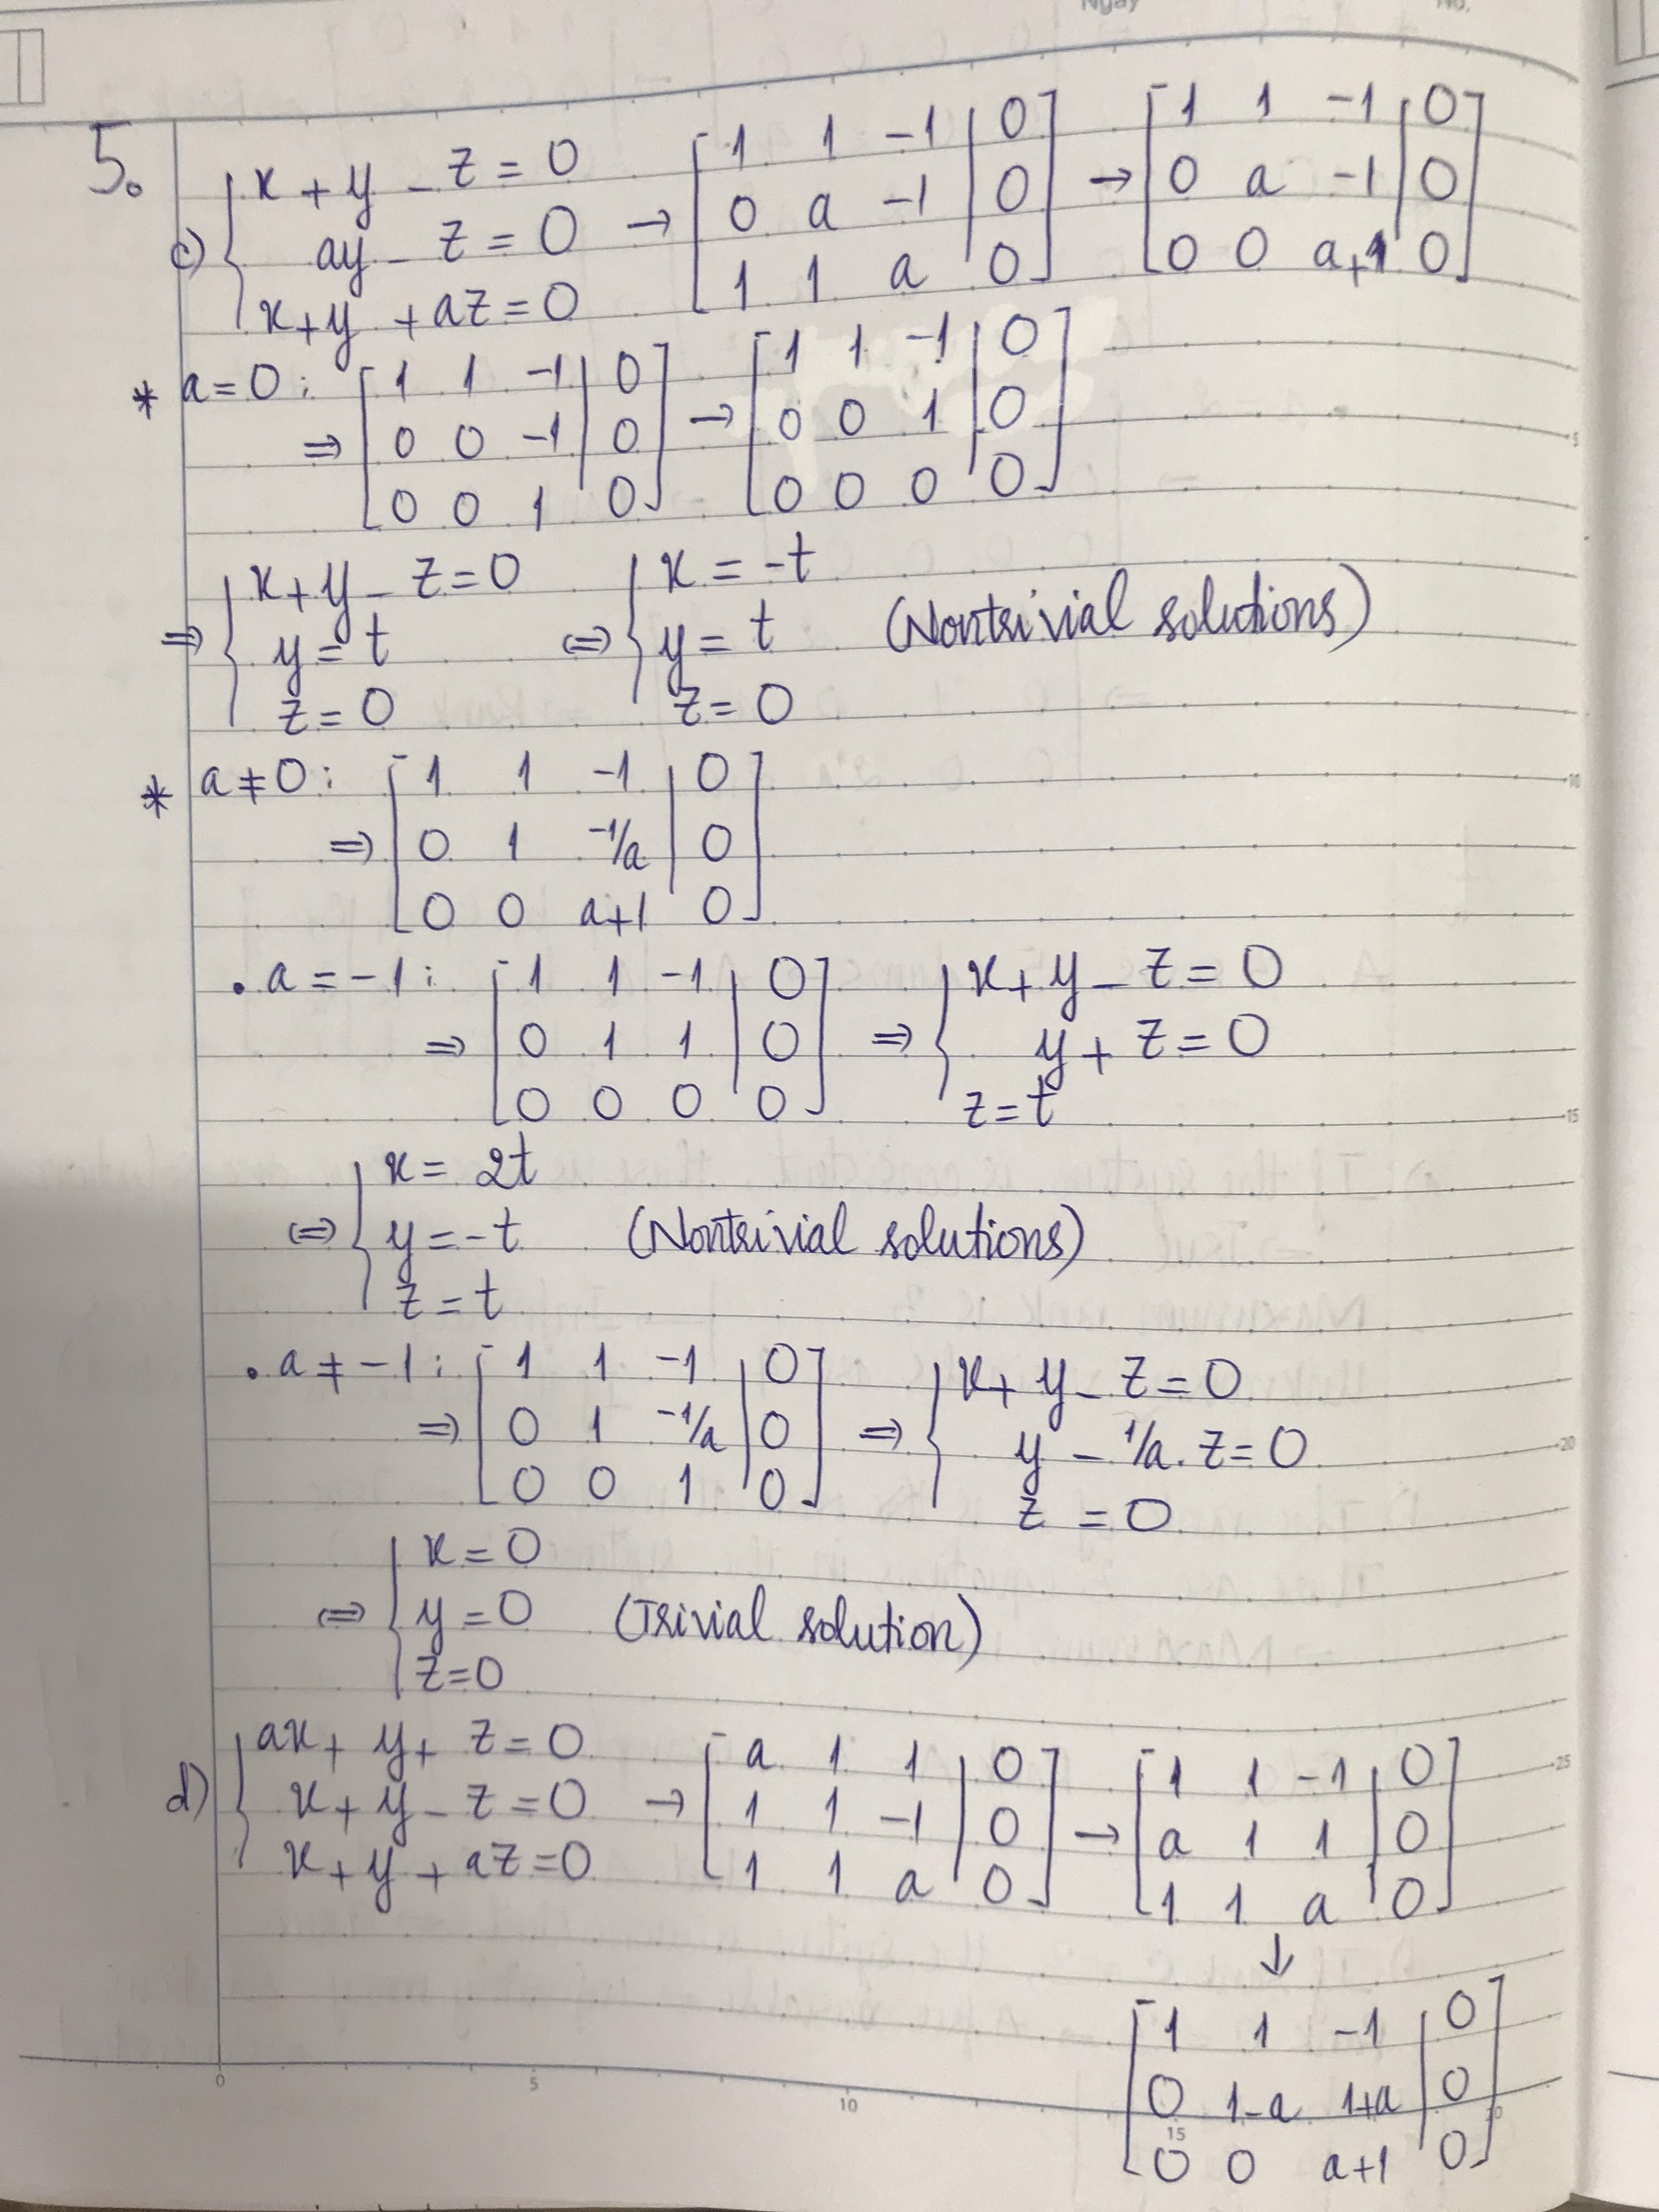 Ngày No.
5.
c) { x + y - z = 0
ay - z = 0
x + y + az = 0
→ [ 1 1 -1 | 0 ]
[ 0 a -1 | 0 ]
[ 1 1 a | 0 ]
→ [ 1 1 -1 | 0 ]
[ 0 a -1 | 0 ]
[ 0 0 a+1 | 0 ]
* a = 0 :
⇒ [ 1 1 -1 | 0 ]
[ 0 0 -1 | 0 ]
[ 0 0 1 | 0 ]
→ [ 1 1 -1 | 0 ]
[ 0 0 1 | 0 ]
[ 0 0 0 | 0 ]
⇒ { x + y - z = 0
y = t
z = 0
⇔ { x = -t
y = t (Nontrivial solutions)
z = 0
* a ≠ 0 :
⇒ [ 1 1 -1 | 0 ]
[ 0 1 -1/a | 0 ]
[ 0 0 a+1 | 0 ]
. a = -1 :
⇒ [ 1 1 -1 | 0 ]
[ 0 1 1 | 0 ]
[ 0 0 0 | 0 ]
⇒ { x + y - z = 0
y + z = 0
z = t
⇔ { x = 2t
y = -t (Nontrivial solutions)
z = t
. a ≠ -1 :
⇒ [ 1 1 -1 | 0 ]
[ 0 1 -1/a | 0 ]
[ 0 0 1 | 0 ]
⇒ { x + y - z = 0
y - 1/a . z = 0
z = 0
⇔ { x = 0
y = 0 (Trivial solution)
z = 0
d) { ax + y + z = 0
x + y - z = 0
x + y + az = 0
→ [ a 1 1 | 0 ]
[ 1 1 -1 | 0 ]
[ 1 1 a | 0 ]
→ [ 1 1 -1 | 0 ]
[ a 1 1 | 0 ]
[ 1 1 a | 0 ]
↓
[ 1 1 -1 | 0 ]
[ 0 1-a 1+a | 0 ]
[ 0 0 a+1 | 0 ]
5
10
15
20
25
0 5 10 15 20